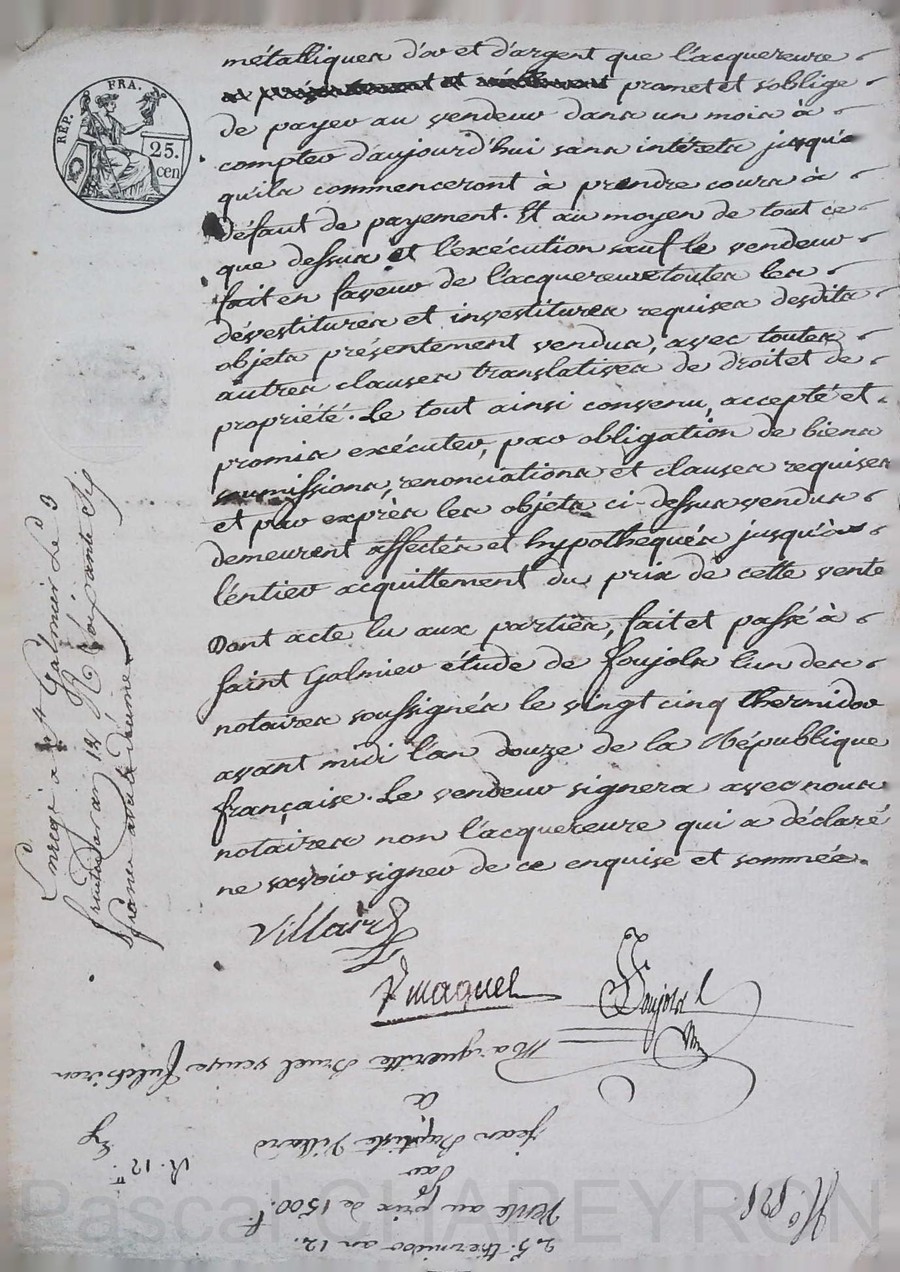 RÉP. FRA.
25.
cen
métalliques d'or et d'argent que l'acquereure
promet et s'oblige
de payer au vendeur dans un mois à
compter d'aujourd'hui sans intérets jusque
quils commenceront à prendre cours à
défaut de payement. Et au moyen de tout ce
que dessus et l'exécution sauf le vendeur
fait en faveur de l'acquereure toutes les
dévestitures et investitures requises desdits
objets présentement vendus, avec toutes
autres clauses translatives de droit et de
propriété. Le tout ainsi convenu, accepté et
promis exécuter, par obligation de biens
soumissions, renonciations et clauses requises
et par exprès les objets ci-dessus vendus
demeurent affectés et hypothequés jusqu'à
l'entier acquittement du prix de cette vente
Dont acte lu aux parties, fait et passé à
saint Galmier étude de foujols l'un des
notaires soussignés le vingt cinq thermidor
avant midi l'an douze de la République
française. Le vendeur signera avec nous
notaires non l'acquereure qui a déclaré
ne savoir signer de ce enquise et sommée.
Villard
Foujols
Enregé à St Galmier Le 3
fructidor an 12 R soixante six
francs
25. thermidor an 12.
Vente au prix de 1500.f
par
Jean Baptiste Villard
à
Margueritte Bruel veuve Fulchiron
R. 12.
Pascal CHAREYRON